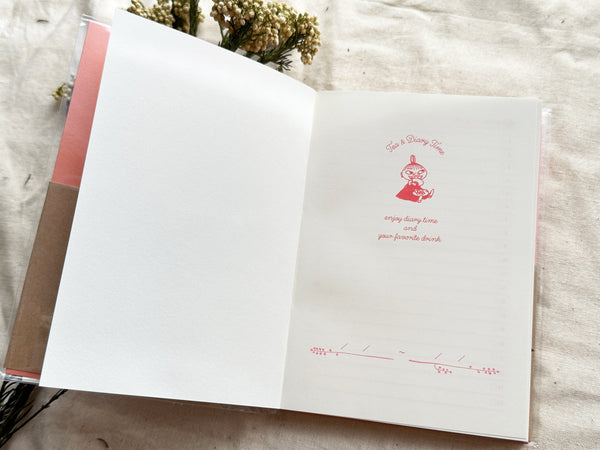 Tea & Diary Time
enjoy diary time
and
your favorite drink
/ / ~ / /